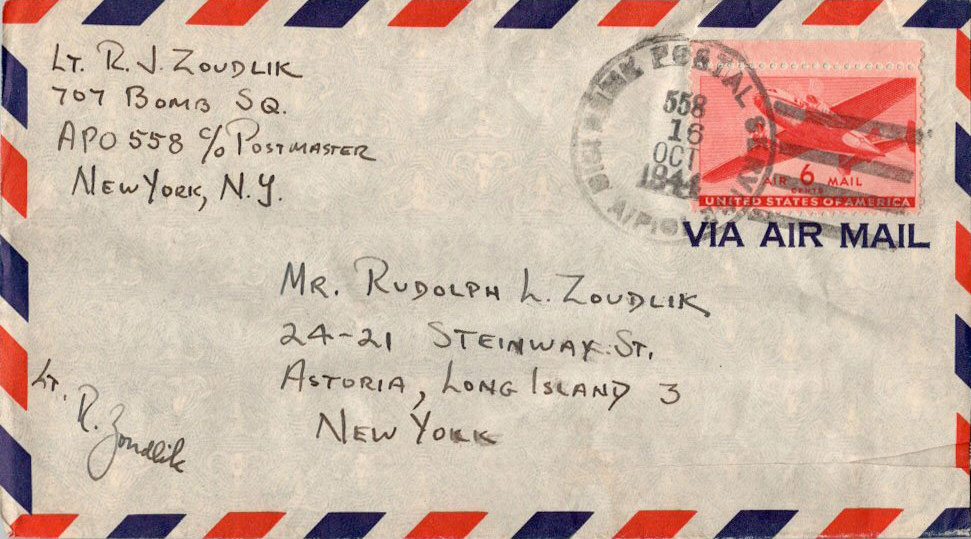 LT. R. J. ZOUDLIK
707 BOMB SQ.
APO 558 c/o POSTMASTER
NEW YORK, N.Y.
POSTAL SERVICE
558
16
OCT
A.P.O.
AIR 6 MAIL
CENTS
UNITED STATES OF AMERICA
VIA AIR MAIL
MR. RUDOLPH L. ZOUDLIK
24-21 STEINWAY ST.
ASTORIA, LONG ISLAND 3
NEW YORK
LT.
R. Zoudlik